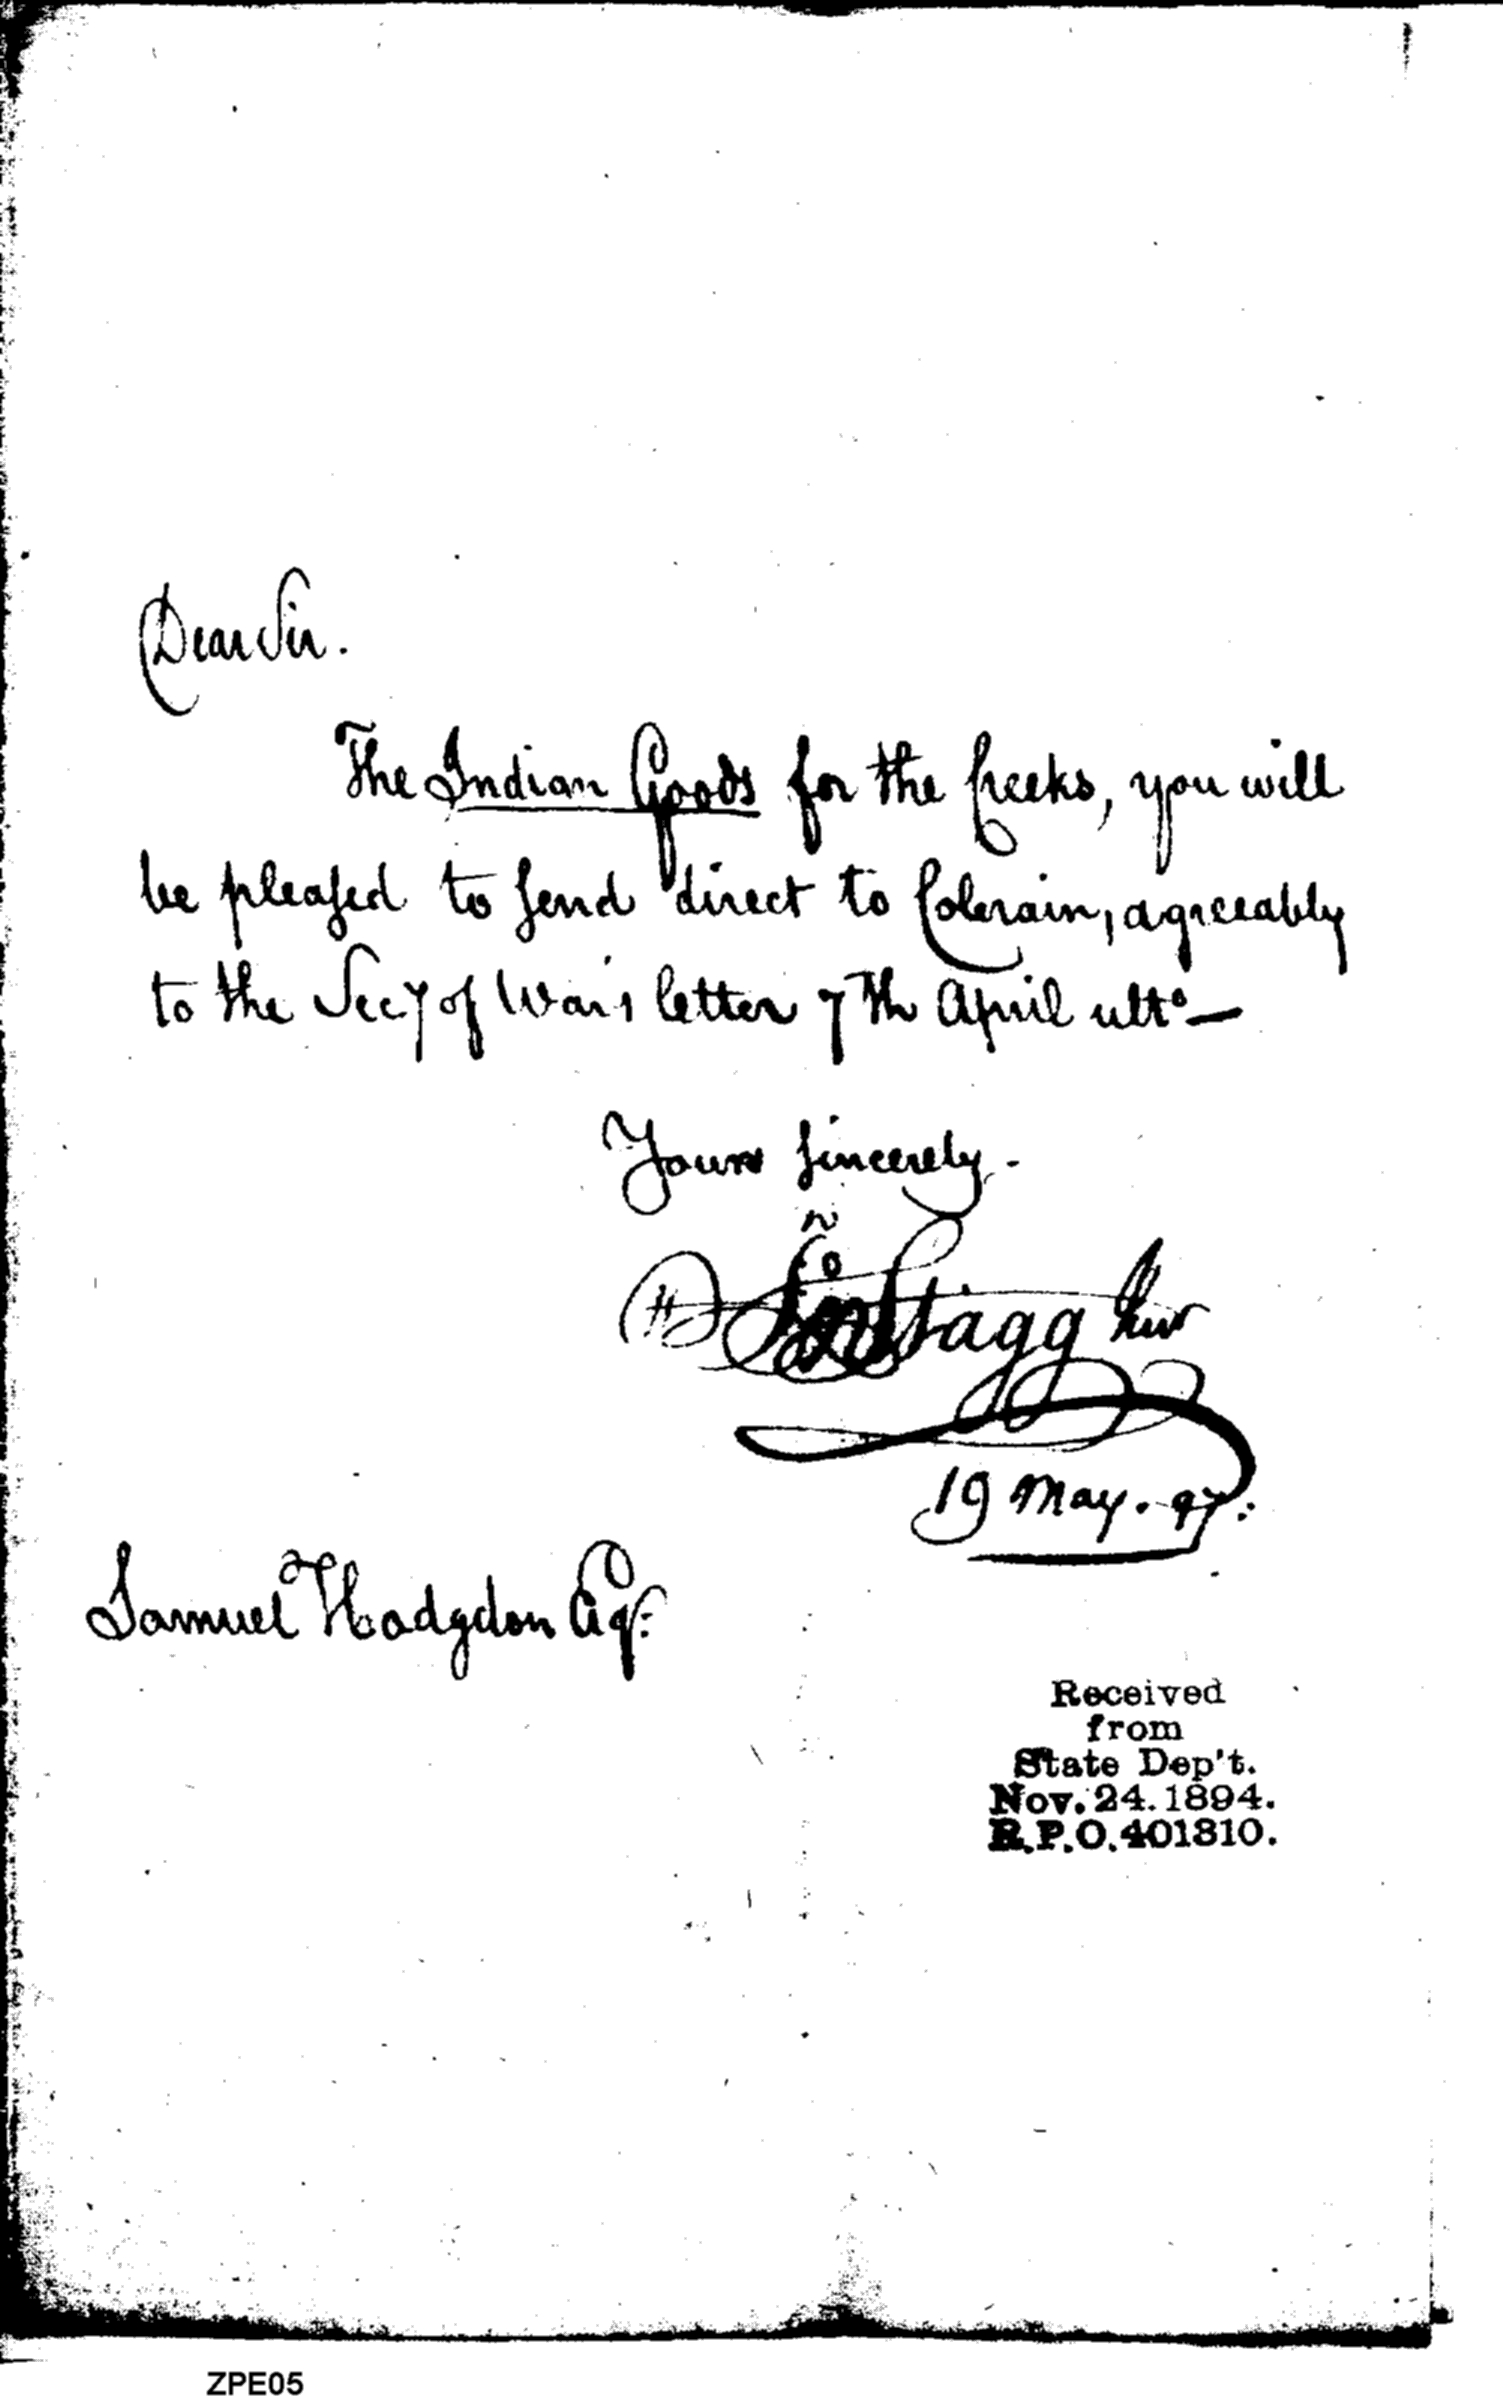 Dear Sir.
The Indian Goods for the Creeks, you will
be pleased to send direct to Colerain, agreeably
to the Secy of War's letter 7th April ulto —
Yours sincerely -
Jno Stagg Junr
19 May. 97:
Samuel Hodgdon Esqr:
Received
from
State Dep't.
Nov. 24. 1894.
R.P.O. 401810.
ZPE05